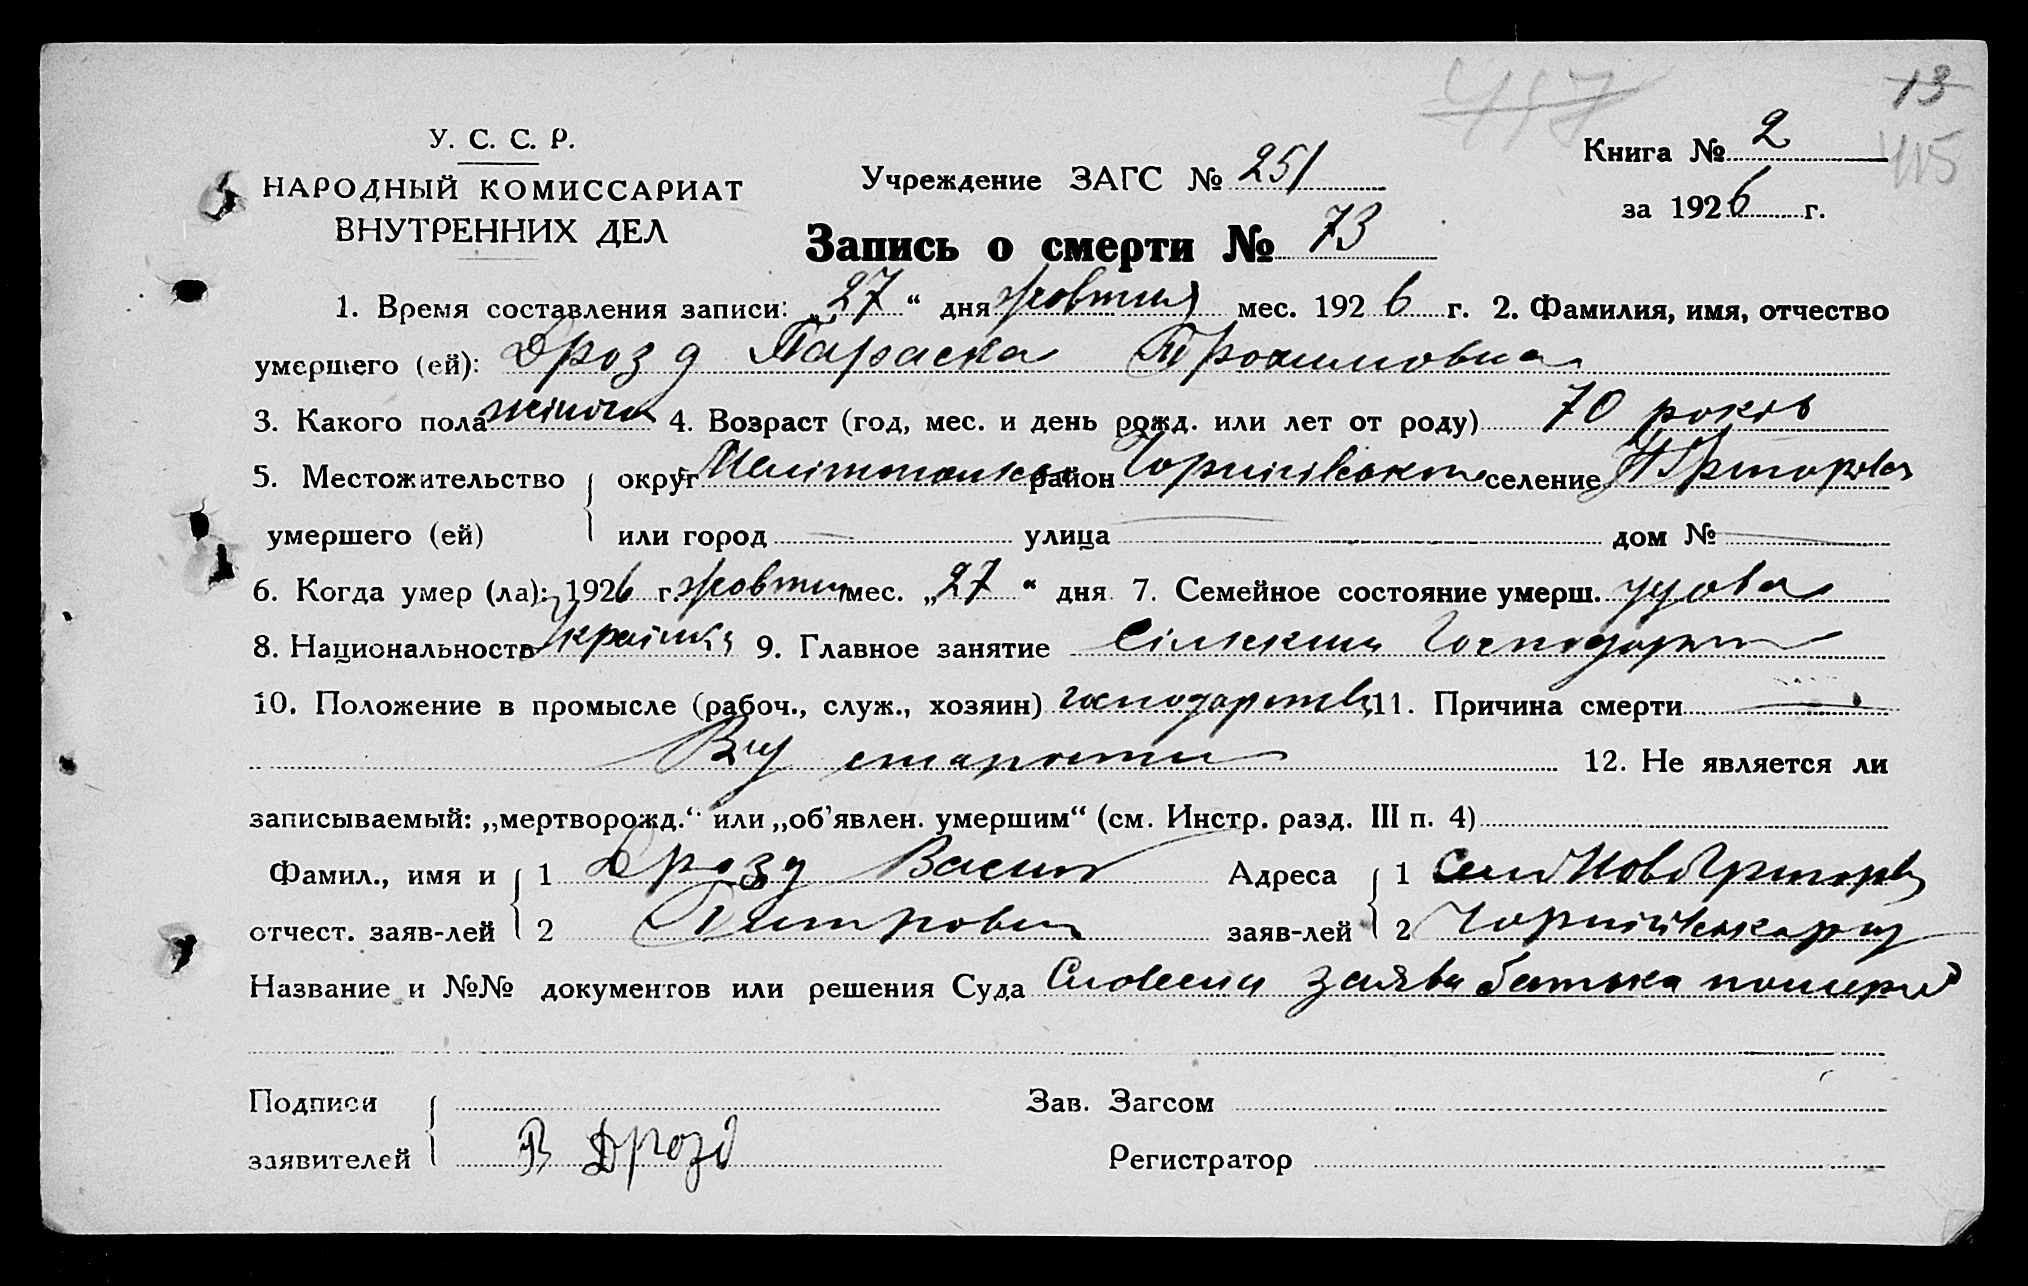 417
13
415
У. С. С. Р.
НАРОДНЫЙ КОМИССАРИАТ
ВНУТРЕННИХ ДЕЛ
Учреждение ЗАГС № 251
Книга № 2
за 1926 г.
Запись о смерти № 73
1. Время составления записи: „27“ дня жовтня мес. 1926 г. 2. Фамилия, имя, отчество
умершего (ей): Дрозд Параска Трохимовна
3. Какого пола жіноча 4. Возраст (год, мес. и день рожд. или лет от роду) 70 років
5. Местожительство округ Мелітопольск район Чорнігівського селение Н Григоровка
умершего (ей) или город улица дом №
6. Когда умер (ла): 1926 г. жовтня мес. „27“ дня 7. Семейное состояние умерш. удова
8. Национальность Українка 9. Главное занятие Сільське Господарство
10. Положение в промысле (рабоч., служ., хозяин) господарств 11. Причина смерти
Від старости 12. Не является ли
записываемый: „мертворожд.“ или „об'явлен. умершим“ (см. Инстр. разд. III п. 4)
Фамил., имя и 1 Дрозд Васил Адреса 1 Село Ново Григорів
отчест. заяв-лей 2 Петрович заяв-лей 2 Чорнігівськ р
Название и №№ документов или решения Суда Словесна заява батька
Подписи Зав. Загсом
заявителей В Дрозд Регистратор